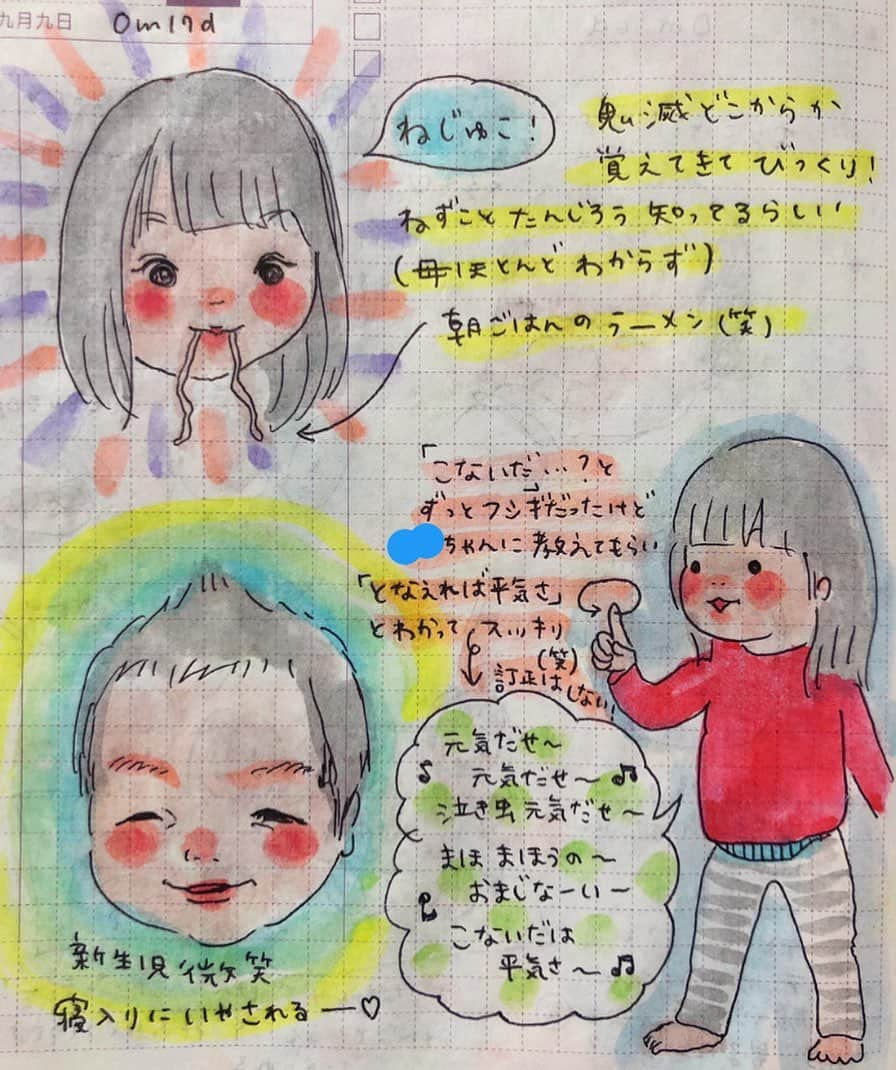 九月九日 0m17d
ねじゅこ!
鬼滅どこからか
覚えてきてびっくり!
ねずことたんじろう知ってるらしい
(母ほとんどわからず)
朝ごはんのラーメン(笑)
「こないだ…?」と
ずっとフシギだったけど
ちゃんに教えてもらい
「となえれば平気さ」
とわかってスッキリ
(笑)
訂正はしない!
元気だせ〜
♪ 元気だせ〜♫
泣き虫元気だせ〜
まほまほうの〜
おまじなーいー
こないだは
平気さ〜♫
新生児微笑
寝入りにいやされるー♡